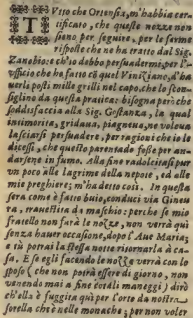 TVtto che Ortensia, m'habbia cer
tificato, che queste nozze non
sono per seguire, per le ferme
risposte che ne ha tratto dal Sig.
Zanobio: e ch'io debbo persuadermi, per l'
vfficio che ha fatto cõ quel Viniziano, d'ha
uerli posti mille grilli nel capo, che lo scon-
da questa pratica: bisogna però che
soddisfaccia alla Sig. Gostanza, la qual
inanimorita, gridaua, piagneua, ne voleua
lasciarsi persuadere, per ragioni che io le
dicessi, che questo parentado fosse per an-
darsene in fumo. Alla fine radolcitasi pur
un poco alle lagrime della nepote, ed alle
mie preghiere; m'ha detto così. In questa
sera come è fatto buio, conduci via Gineu
ra, trauestita da maschio: perche se mio
fratello non farà le nozze, non verrà quì
senza hauer occasione, dopo l'Aue Maria;
e tù potrai la stessa notte rimenarla à ca-
sa. E se egli facendo le nozze verrà con lo
sposo (che non potrà essere di giorno, non
venendo mai a fine cotali maneggi) dirò
ch'ella è fuggita quì per l'orto da nostra
sorella che è nelle monache; per non voler